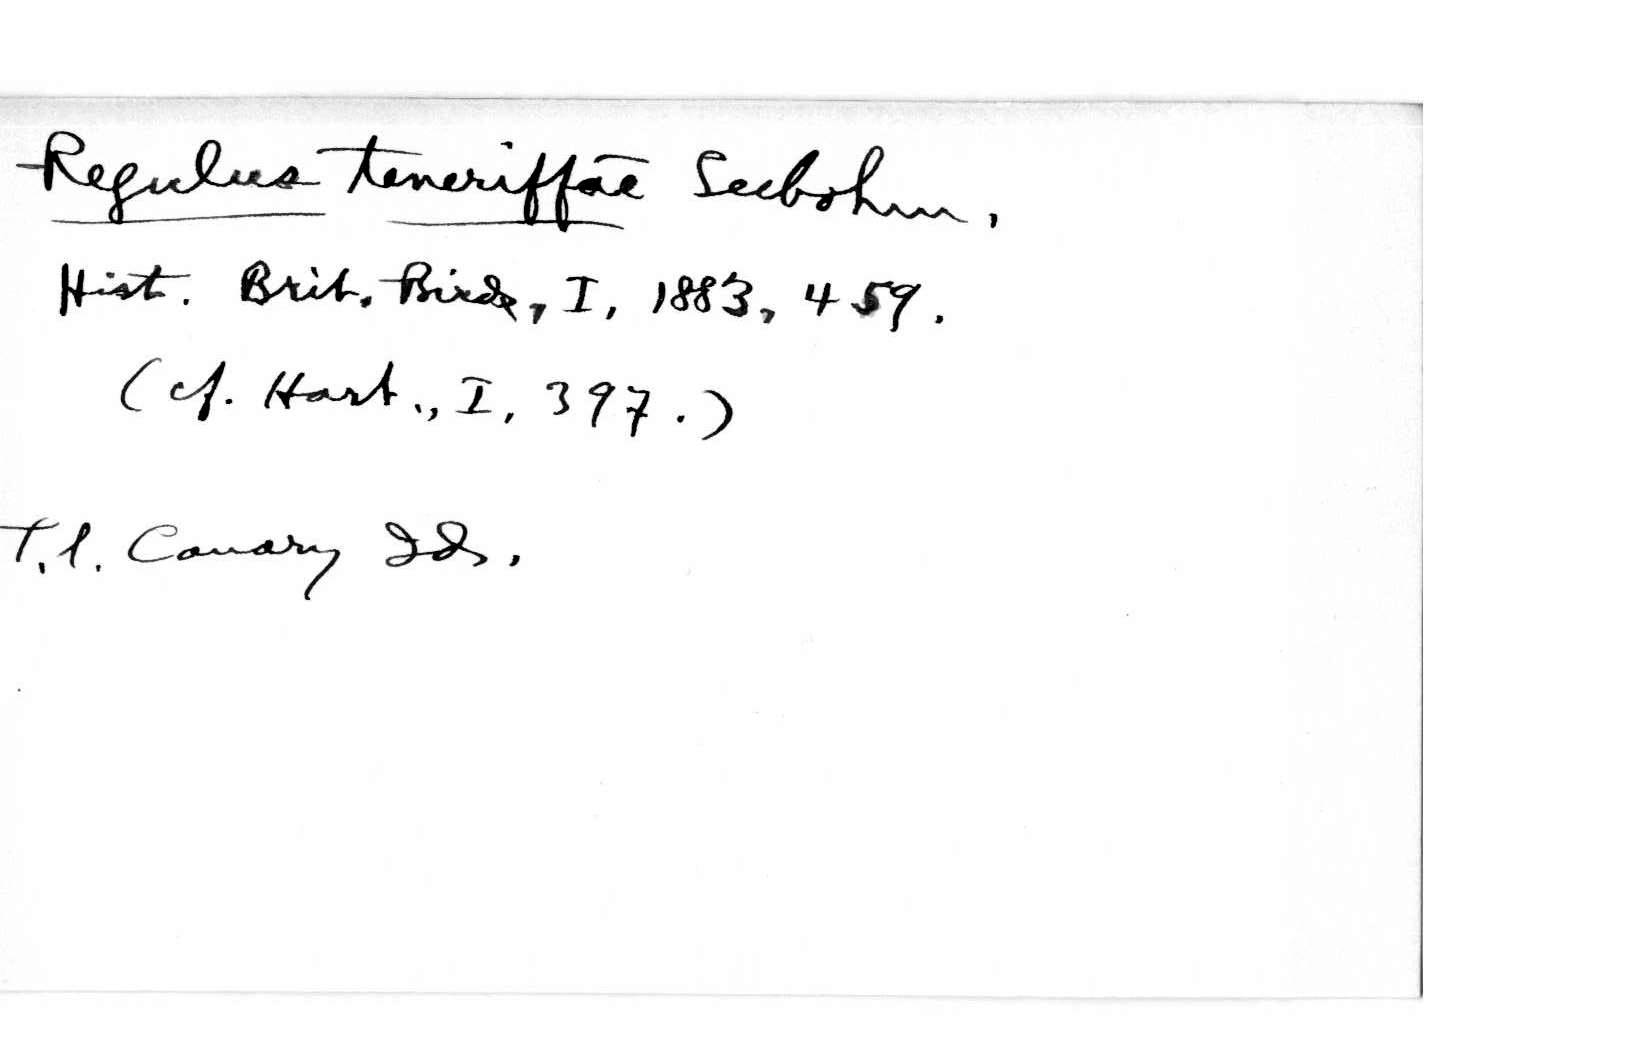 Regulus teneriffae Seebohm,
Hist. Brit. Birds, I, 1883, 459.
(cf. Hart., I, 397.)
T.l. Canary Ids.